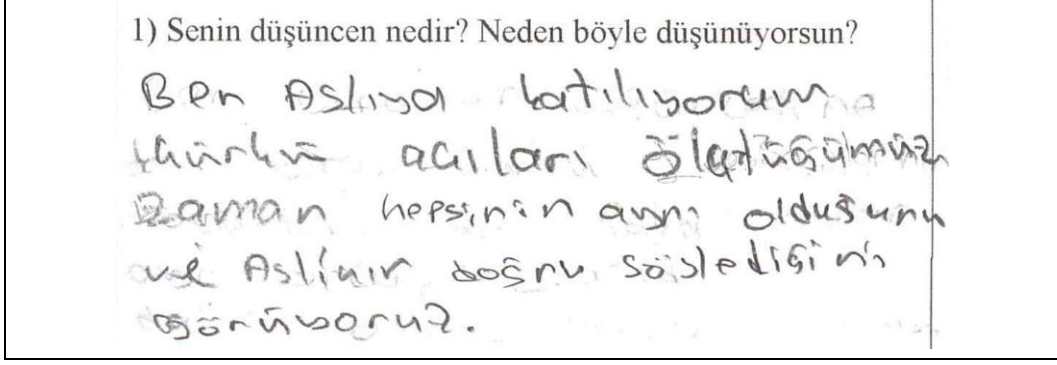 1) Senin düşüncen nedir? Neden böyle düşünüyorsun?
Ben Aslıya katılıyorum
Çünkü açıları ölçtüğümüz
zaman hepsinin aynı olduğunu
ve Aslının doğru söylediğini
görüyoruz.